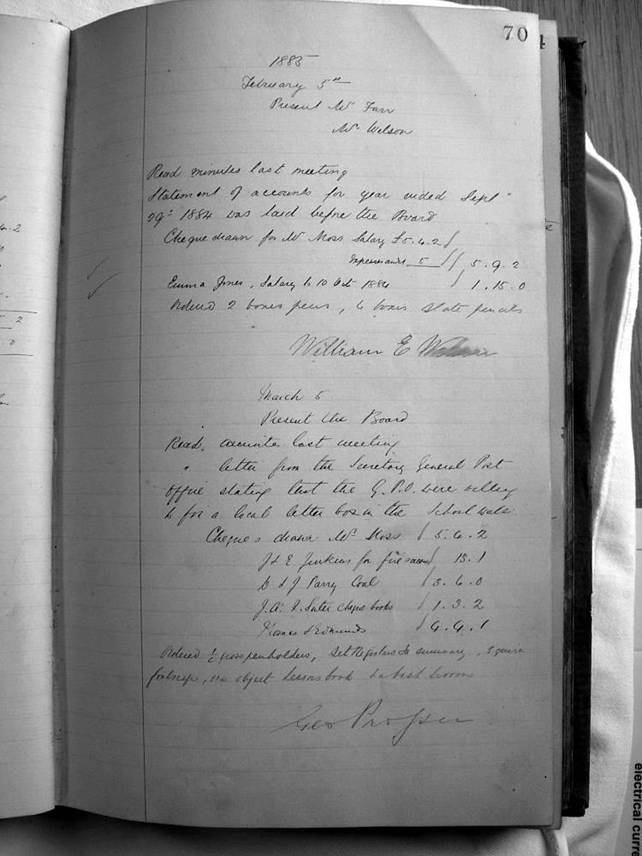 70
1885
February 5th
Present Mr Farr
Mr Wilson
Read minutes last meeting
Statement of accounts for year ended Sept
29th 1884 was laid before the Board
Cheque drawn for Mr Moss Salary £5.4.2
5 5.9.2
Emma Jones, Salary to 10 Oct 1884 1.15.0
Ordered 2 boxes pens, 6 boxes slate pencils
William E Wilson
March 5
Present the Board
Read, minutes last meeting
" letter from the Secretary General Post
Office stating that the G.P.O. were willing
to fix a local letter box in the School wall.
Cheques drawn Mr Moss 5.4.2
J & E Jenkins for 13.1
D & J Parry Coal 3.6.0
J.A. cheque books 1.3.2
& Edmunds 4.4.1
Ordered ½ gross penholders, Set Registers & summary,
foolscap, one object lessons book
Geo Prosser
electrical curre